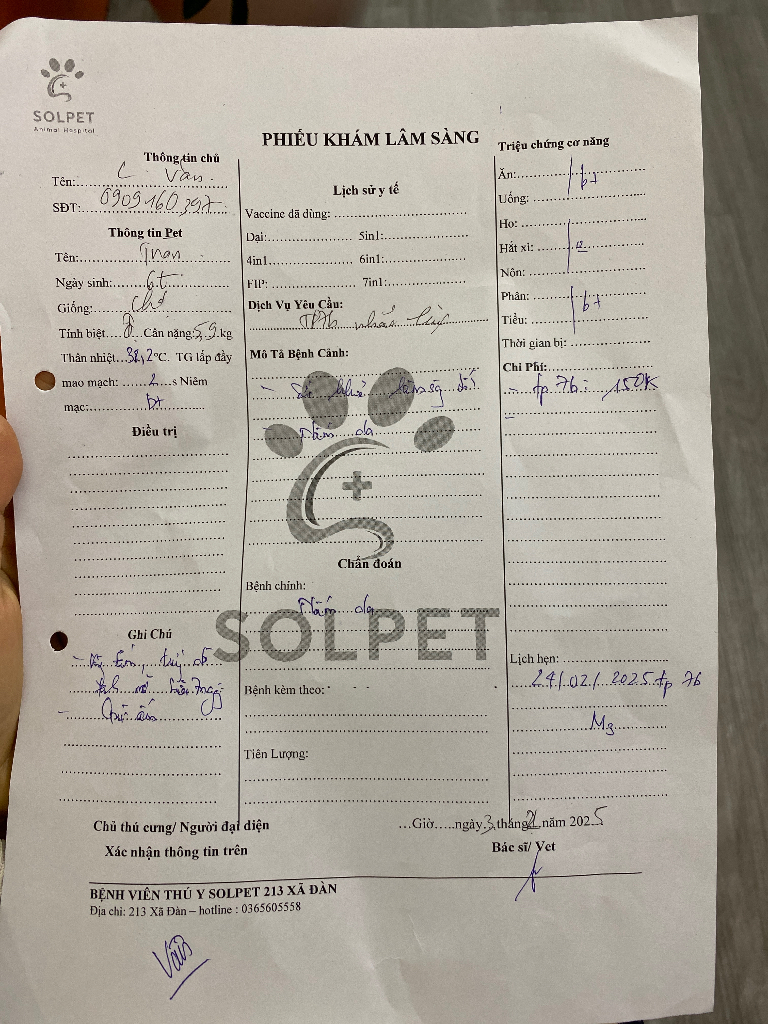 SOLPET
Animal Hospital
PHIẾU KHÁM LÂM SÀNG
Thông tin chủ
Tên: C Vân
SĐT: 0909160397
Thông tin Pet
Tên:
Ngày sinh: 6t
Giống: chó
Tính biệt Cân nặng: 5,9 kg
Thân nhiệt 38,2°C. TG lấp đầy
mao mạch: 2 s Niêm
mạc: bt
Điều trị
Ghi Chú
Lịch sử y tế
Vaccine đã dùng:
Dại: 5in1:
4in1 6in1:
FIP: 7in1:
Dịch Vụ Yêu Cầu:
TP7b nhắc lại
Mô Tả Bệnh Cảnh:
- Nấm da
Chẩn đoán
Bệnh chính:
Nấm da
SOLPET
Bệnh kèm theo:
Tiên Lượng:
Triệu chứng cơ năng
Ăn: bt
Uống:
Ho:
Hắt xì:
Nôn:
Phân: bt
Tiểu:
Thời gian bị:
Chi Phí:
- tp 7b: 150K
Lịch hẹn:
24/02/2025 tp 7b
Mg
Chủ thú cưng/ Người đại diện
Xác nhận thông tin trên
…Giờ…..ngày 3 tháng 2 năm 2025
Bác sĩ/ Vet
BỆNH VIỆN THÚ Y SOLPET 213 XÃ ĐÀN
Địa chỉ: 213 Xã Đàn – hotline : 0365605558
Vân